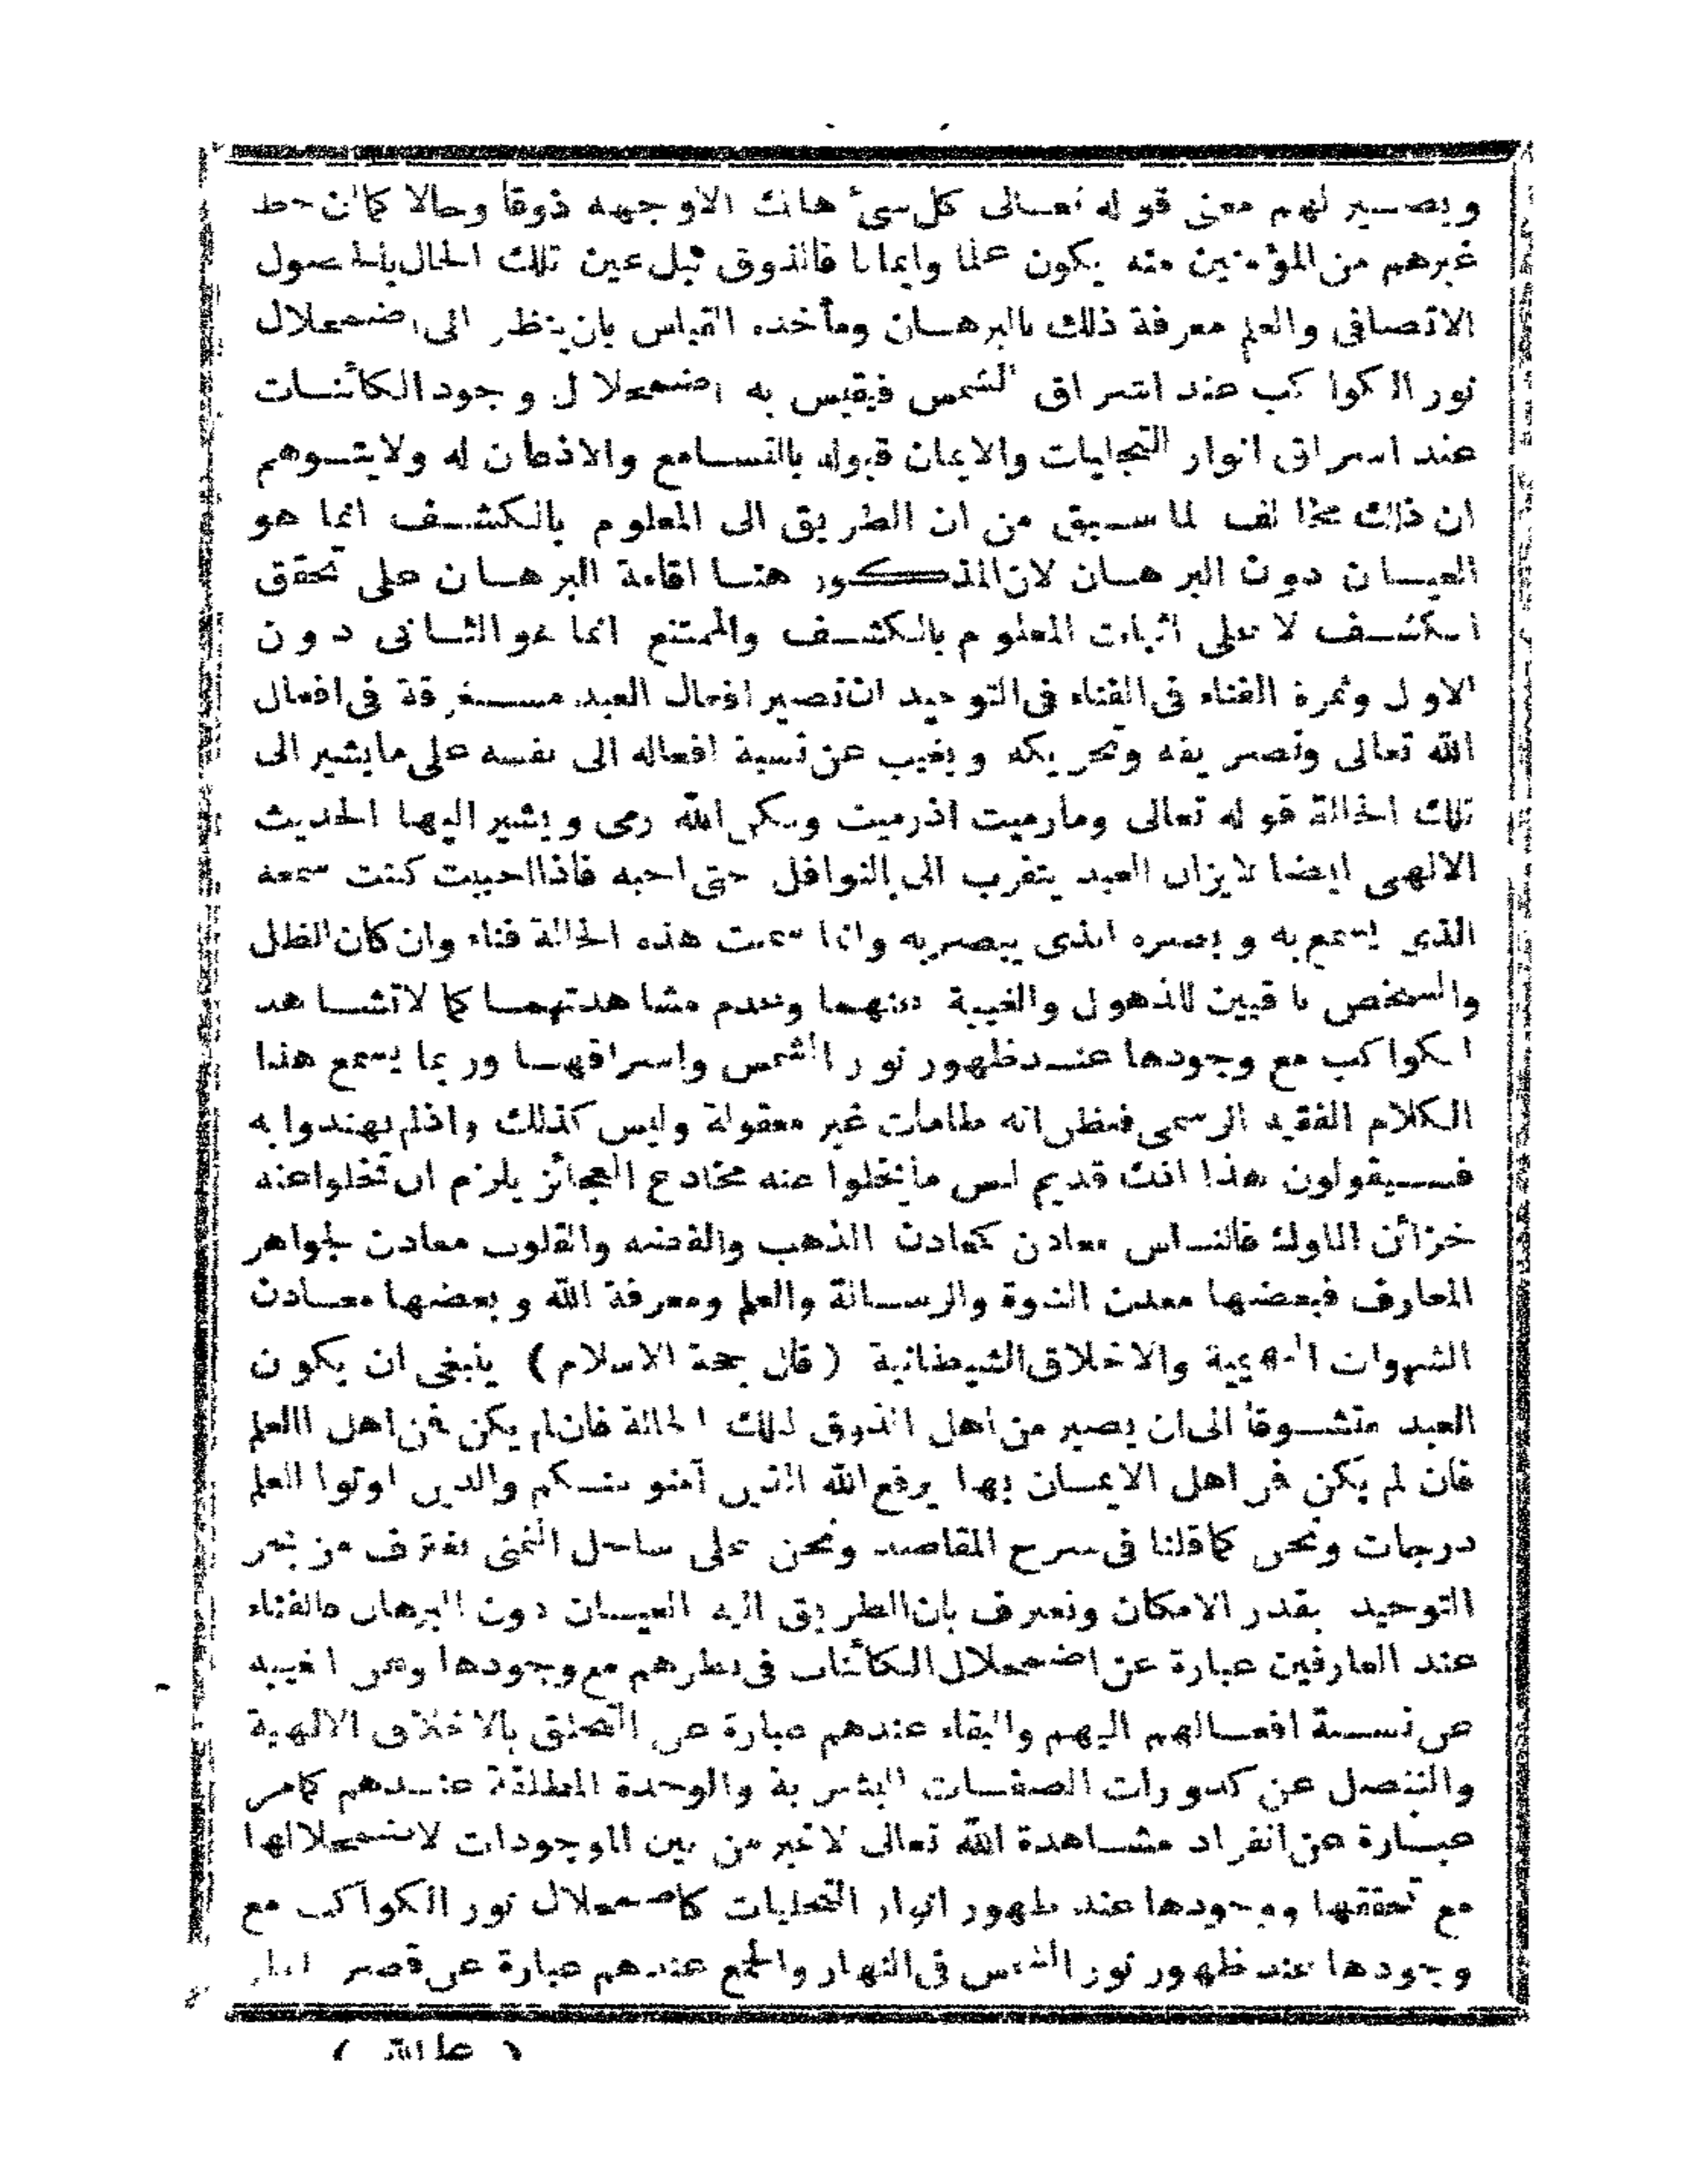 ويصير لهم معنى قوله تعالى كل شئ هالك الاوجهه ذوقا وحالا كما ان حظ
غيرهم من المؤمنين منه يكون علما وايمانا فالذوق نيل عين تلك الحال بالحصول
الاتصافى والعلم معرفة ذلك بالبرهان ومأخذه القياس بان ينظر الى اضمحلال
نور الكواكب عند اشراق الشمس فيقيس به اضمحلال وجود الكائنات
عند اشراق انوار التجليات والايمان قبوله بالتسامع والاذعان له ولايتوهم
ان ذلك مخالف لما سبق من ان الطريق الى المعلوم بالكشف انما هو
العيان دون البرهان لان المذكور هنا اقامة البرهان على تحقق
الكشف لا على اثبات المعلوم بالكشف والممتنع انما هو الثانى دون
الاول وثمرة الفناء فى الفناء فى التوحيد ان تصير افعال العبد مستغرقة فى افعال
الله تعالى وتصريفه وتحريكه ويغيب عن نسبة افعاله الى نفسه على مايشير الى
تلك الحالة قوله تعالى ومارميت اذرميت ولكن الله رمى ويشير اليها الحديث
الالهى ايضا لايزال العبد يتقرب الى بالنوافل حتى احبه فاذا احببت كنت سمعه
الذى يسمع به وبصره الذى يبصربه وانما سميت هذه الحالة فناء وان كان الظل
والشخص باقيين للذهول والغيبة عنهما وعدم مشاهدتهما كما لاتشاهد
الكواكب مع وجودها عند ظهور نور الشمس واشراقها وربما يسمع هذا
الكلام الفقيه الرسمى فيظن انه طامات غير معقولة وليس كذلك واذلم يهتدوا به
فسيقولون هذا افك قديم ليس مايخلوا عنه مخادع العجائز يلزم ان تخلوا عنه
خزائن الملوك فالناس معادن كمعادن الذهب والفضه والقلوب معادن لجواهر
المعارف فبعضها معدن النبوة والرسالة والعلم ومعرفة الله وبعضها معادن
الشهوات البهيمية والاخلاق الشيطانية (قال حجة الاسلام) ينبغى ان يكون
العبد متشوقا الى ان يصير من اهل الذوق لتلك الحالة فان لم يكن فمن اهل االعلم
فان لم يكن فمن اهل الايمان بها يرفع الله الذين آمنو منكم والذين اوتوا العلم
درجات ونحن كما قلنا فى شرح المقاصد ونحن على ساحل التمنى نغترف من بحر
التوحيد بقدر الامكان ونعترف بان الطريق اليه العيان دون البرهان فالفناء
عند العارفين عبارة عن اضمحلال الكائنات فى نظرهم مع وجودها وعن الغيبه
عن نسبة افعالهم اليهم والبقاء عندهم عبارة عن التخلق بالاخلاق الالهية
والتنصل عن كدورات الصفات البشرية والوحدة المطلقة عندهم كمامر
عبارة عن انفراد مشاهدة الله تعالى لاغير من بين الموجودات لاضمحلالها
مع تحققها ووجودها عند ظهور انوار التجليات كاضمحلال نور الكواكب مع
وجودها عند ظهور نور الشمس فى النهار والجمع عندهم عبارة عن قصر